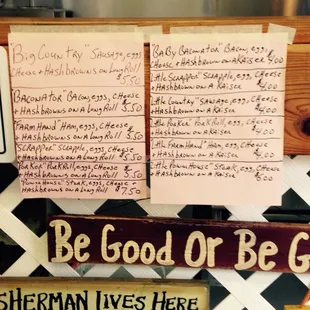 "Big Country" Sausage, eggs
Cheese + Hashbrowns on a Long Roll
$5.50
"Baconator" Bacon, eggs, Cheese
+ Hashbrowns on a Long Roll $5.50
"Farm Hand" Ham, eggs, Cheese
+ Hashbrowns on a Long Roll $5.50
"Scrapper" Scrapple, eggs, Cheese
+ Hashbrowns on a Long Roll $5.50
"Porker" Pork Roll, eggs, Cheese
+ Hashbrowns on a Long Roll $5.50
"Powerhouse" Steak, eggs, Cheese +
Hashbrowns on a Long Roll $7.50
"Baby Baconator" Bacon, eggs,
Cheese + Hashbrowns on a Kaiser $4.00
"Little Scrapper" Scrapple, eggs, Cheese
+ Hashbrown on a Kaiser $4.00
"Little Country" Sausage, eggs, Cheese
+ Hashbrown on a Kaiser $4.00
"Little Porker" Pork Roll, eggs, Cheese
+ Hashbrown on a Kaiser $4.00
"Little Farm Hand" Ham, eggs, Cheese
+ Hashbrown on a Kaiser $4.00
"Little Powerhouse" Steak, eggs, Cheese
+ Hashbrown on a Kaiser
Be Good Or Be G
SHERMAN LIVES HERE